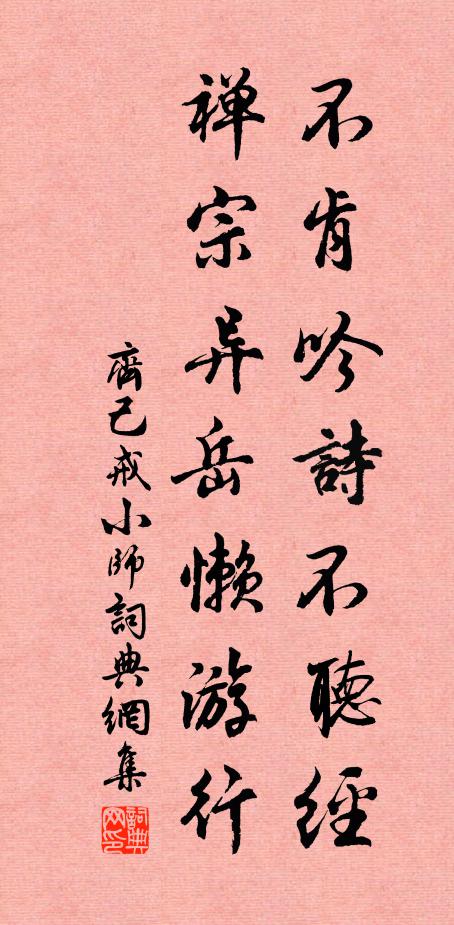 不肯吟詩不聽經
禅宗异岳懒游行
齊己戒小師詞典網集
詞典網印